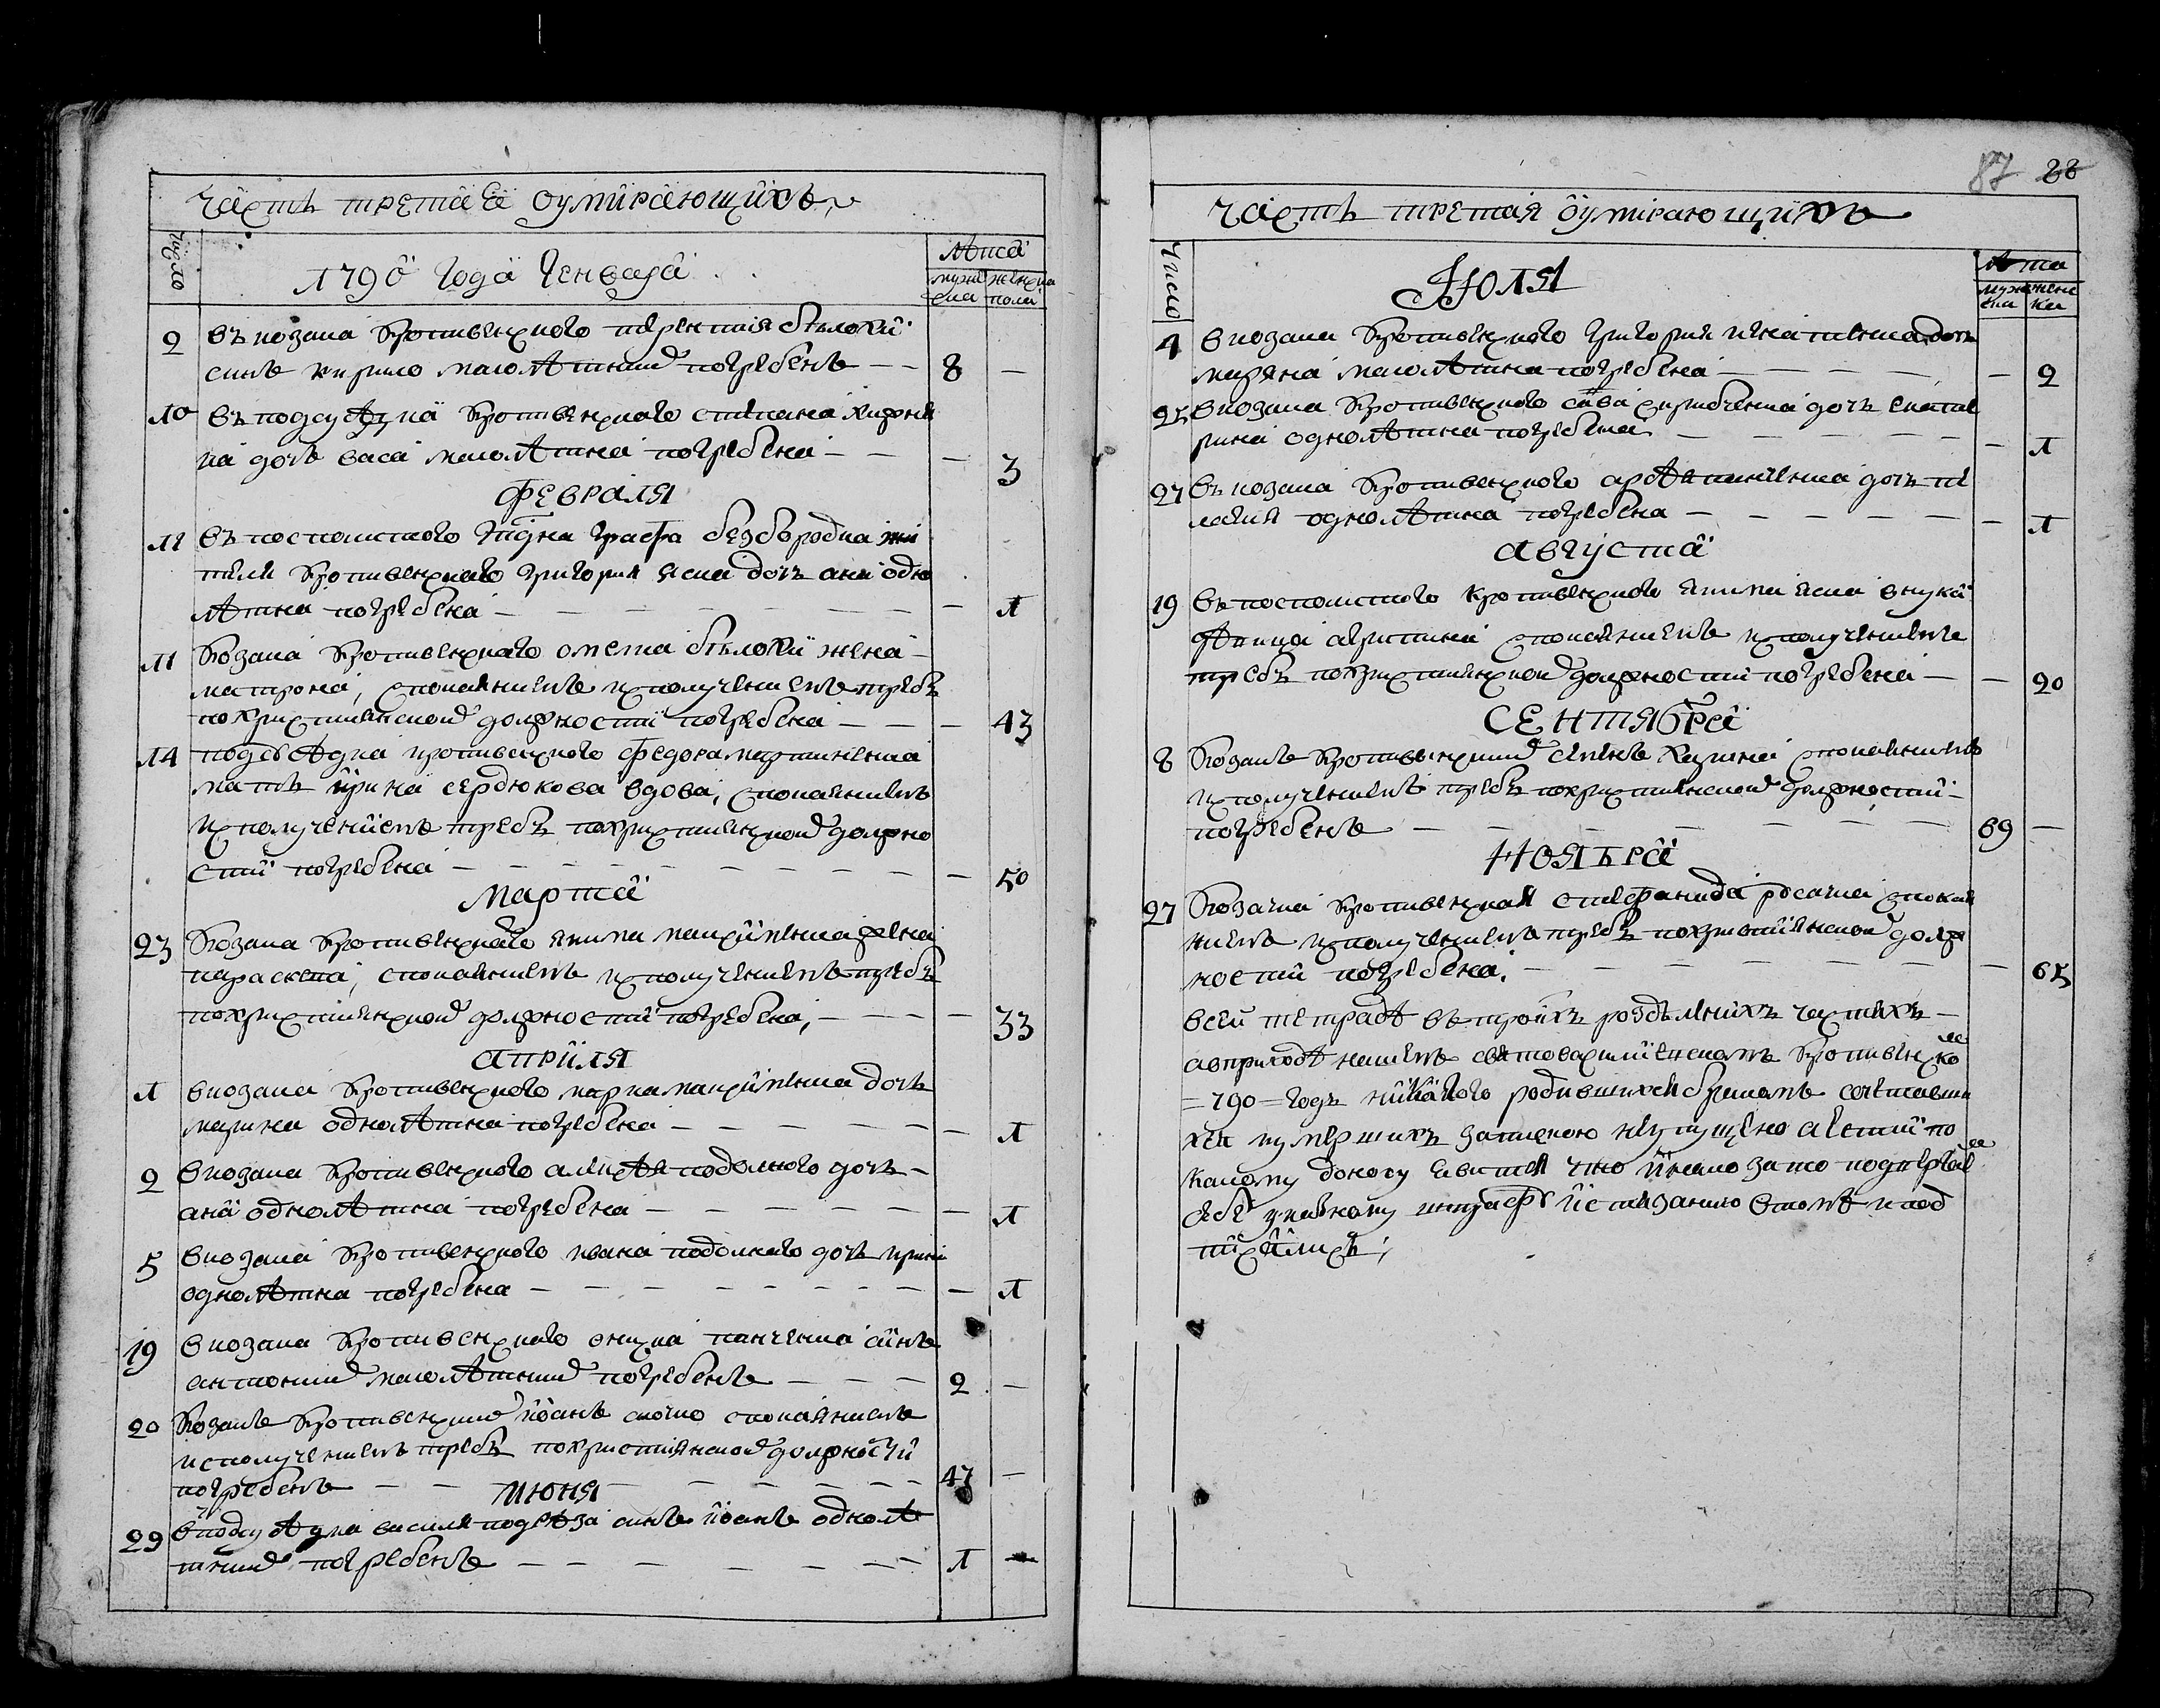 часть третаѧ оумирающихъ
число
1790 года Генвара
лѣта
мужеска
женска пола
2 въ козака кротивенского терентия бѣлохи
синъ кирило малолѣтний погребенъ — — 8 —
10 въ подсусѣдка кротивенского стѣпана
ка дочъ васа малолѣтна погребена — — — 3
февраля
11 въ посполитого графа безбородка жи
теля кротивенского григория дочъ ана одно
лѣтна погребена — 1
11 козака кротивенского омелка бѣлохи жена
матрона, споканнiемъ исполученiемъ требъ
похристиянской должности погребена — — — 43
14 подсосѣдка кротивенского федора мартиненка
мать ирина сердюкова вдова, споканнiемъ
исполученiемъ требъ похристиянской должно
сти погребена — 50
марта
23 козака кротивенского якима жена
параскева, споканнiемъ исполученiемъ требъ
похристиянской должности погребена, — 33
априля
1 вкозака кротивенского карпа дочъ
марина однолѣтна погребена — 1
2 вкозака кротивенского алексѣя подолного дочъ
ана однолѣтна погребена — 1
5 вкозака кротивенского ивана подолного дочъ ирина
однолѣтна погребена — 1
19 вкозака кротивенского панченка синъ
антоний малолѣтний погребенъ — 2 —
20 козакъ кротивенский иоанъ скочко споканнiемъ
исполученiемъ требъ похристиянской должности
погребенъ — 47 —
июня
29 вподсусѣдка василя синъ иоанъ однолѣ
тний погребенъ — 1 —
87 88
часть третая оумирающихъ
число
Июля
лѣта
мужеска
женска
4 вкозака кротивенского григория дочъ
маряна малолѣтна погребена — 2
25 вкозака кротивенского сава дочъ екате
рина однолѣтна погребена — 1
27 въ козака кротивенского дочъ пе
лагия однолѣтна погребена — 1
августа
19 въ посполитого кротивенского якима внука
дѣвица акристина споканнiемъ исполученiемъ
требъ похристиянской должности погребена — 20
сентября
8 козакъ кротивенский семенъ споканнiемъ
исполученiемъ требъ похристиянской должности
погребенъ — 69 —
ноября
27 козачка кротивенская стефанида росачка спокая
нiемъ исполученiемъ требъ похристиянской долж
ности погребена. — 65
всей тетрадѣ въ троихъ роздѣлнихъ частяхъ
априходѣ нашемъ святовасилиевскомъ кротивенско
=790= годъ никакого родившихся бракомъ сочетавши
хся иумершихъ запискою неупущено аести по
какому доносу явится что утаено зато подвергае
себе указному штрафу истязанию втомъ ипод
писуемся;